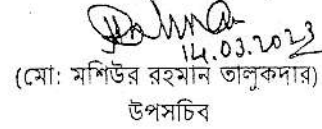 14.03.2023
(মো: মশিউর রহমান তালুকদার)
উপসচিব